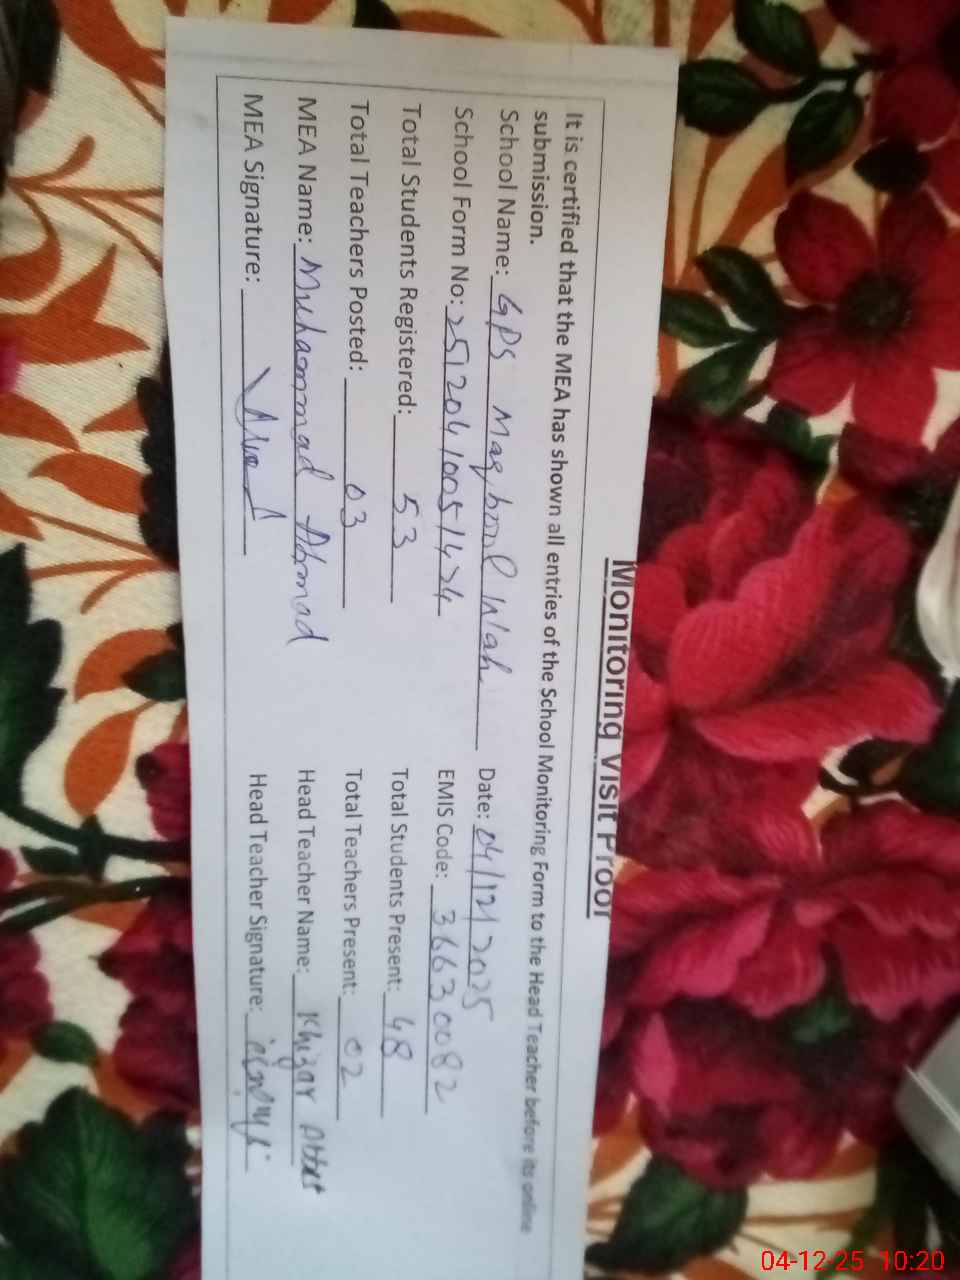 Monitoring Visit Proof
It is certified that the MEA has shown all entries of the School Monitoring Form to the Head Teacher before its online
submission.
School Name: GPS Maqbool Wah Date: 04/12/2025
School Form No: 25120410051424 EMIS Code: 36630082
Total Students Registered: 53 Total Students Present: 48
Total Teachers Posted: 03 Total Teachers Present: 02
MEA Name: Muhammad Ahmad Head Teacher Name: Khizar Abbas
MEA Signature: Head Teacher Signature:
04-12-25 10:20